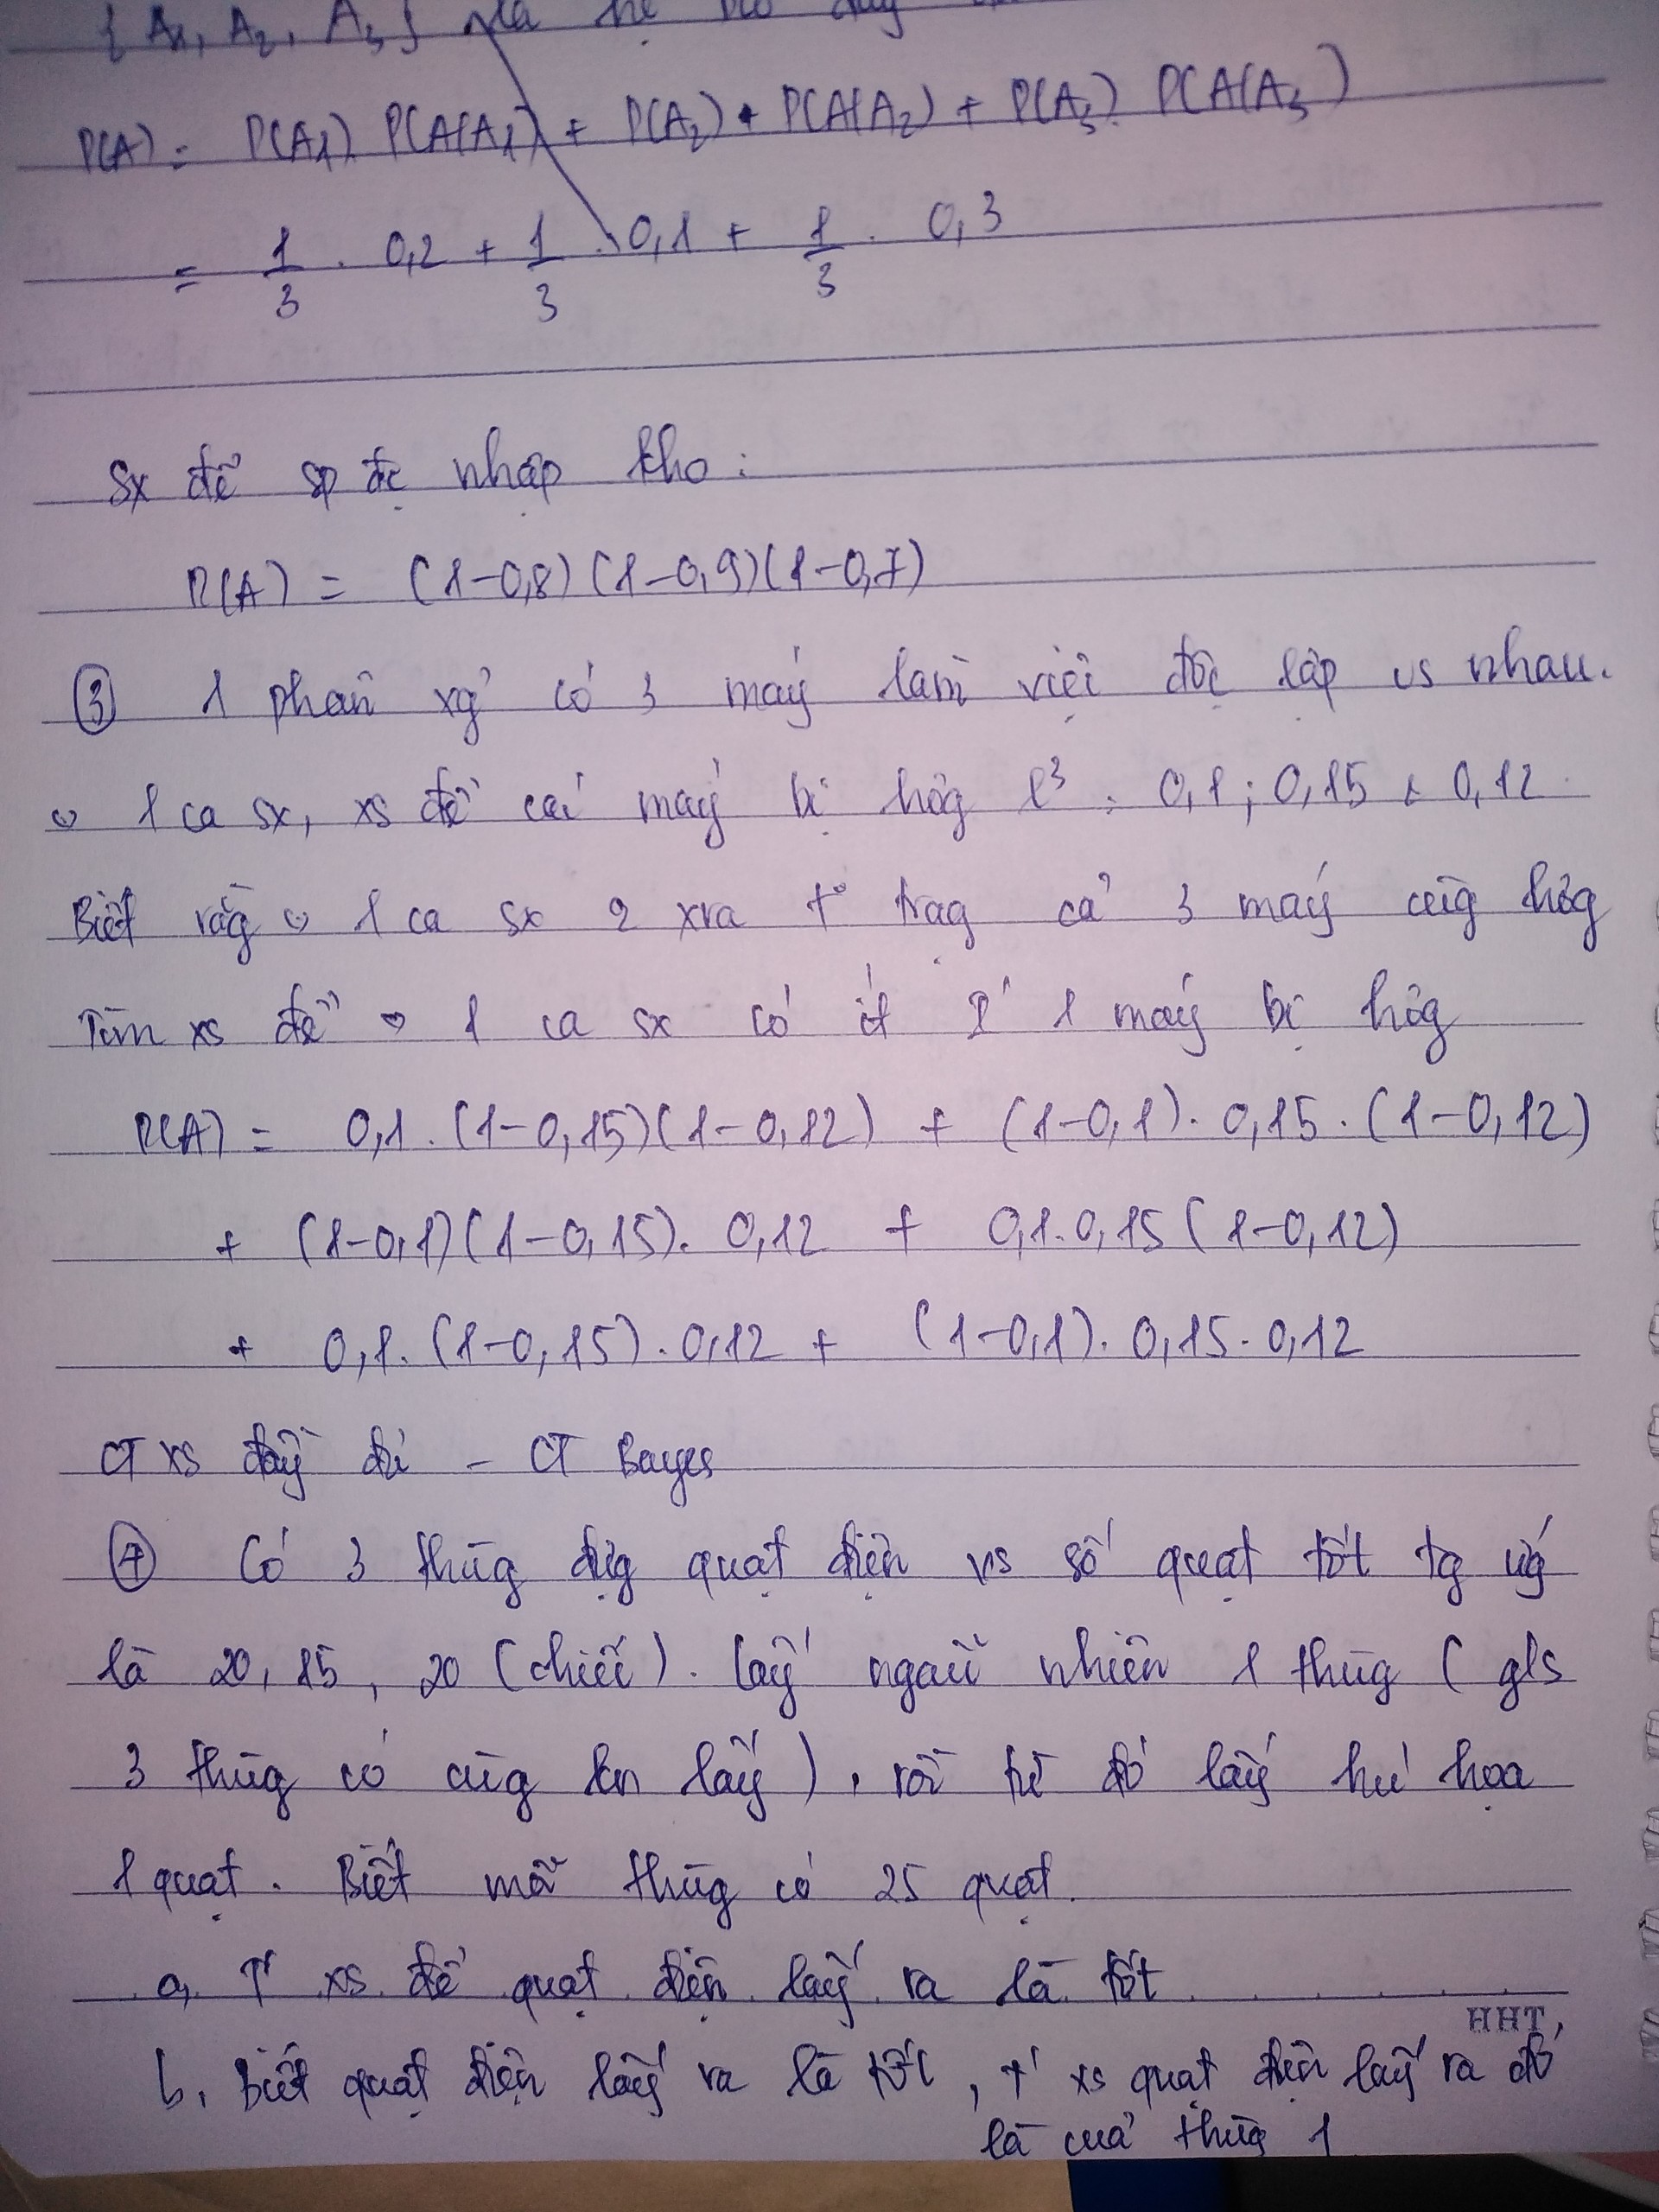 { A1, A2, A3 } là hệ
P(A) = P(A1). P(A(A1) + P(A2) • P(A(A2) + P(A3). P(A(A3)
= 1/3 . 0,2 + 1/3 . 0,1 + 1/3 . 0,3
Sx để sp đc nhập kho :
P(A) = (1-0,8) (1-0,9)(1-0,7)
③ 1 phân xg có 3 máy làm việc độc lập vs nhau.
1 ca sx, xs để các máy bị hỏg l3 : 0,1 ; 0,15 & 0,12
Biết rằg 1 ca sx xra trạg cả 3 máy cùg hỏg
Tìm xs để 1 ca sx có ít 1 máy bị hỏg
P(A) = 0,1 . (1-0,15)(1-0,12) + (1-0,1). 0,15 . (1-0,12)
+ (1-0,1)(1-0,15). 0,12 + 0,1.0,15 (1-0,12)
+ 0,1. (1-0,15) . 0,12 + (1-0,1). 0,15. 0,12
CT xs đầy đủ - CT Bayes
④ Có 3 thùg đựg quạt điện vs số quạt tốt tg ứg
là 20, 15, 20 (chiếc). Lấy ngẫu nhiên 1 thùg ( gls
3 thùg có cùg kn lấy ), rồi từ đó lấy hú họa
1 quạt. Biết mỗi thùg có 25 quạt.
a, T xs để quạt điện lấy ra là tốt
HHT
b, Biết quạt điện lấy ra là tốt, T xs quạt điện lấy ra đó
là của thùg 1